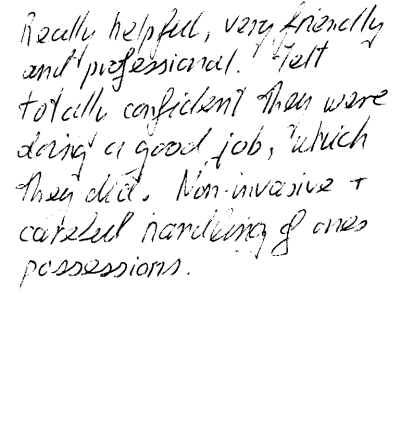 Really helpful, very friendly
and professional. Felt
totally confident they were
doing a good job, which
they did. Non-invasive +
careful handling of ones
possessions.